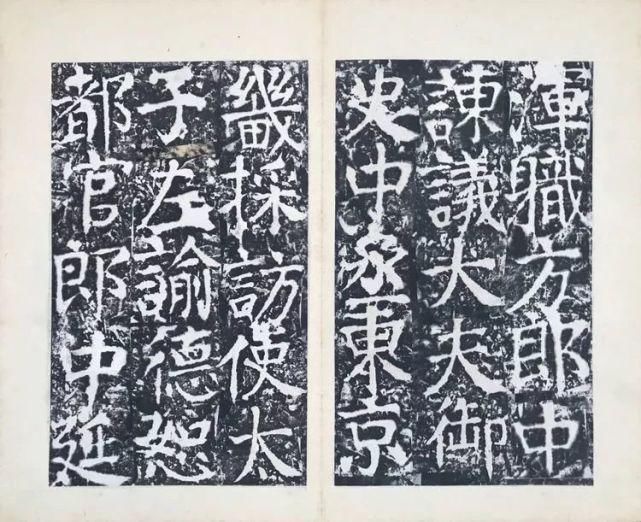 渾職方郎中
諫議大夫御
史中丞東京
畿採訪使太
子左諭德恕
都官郎中延